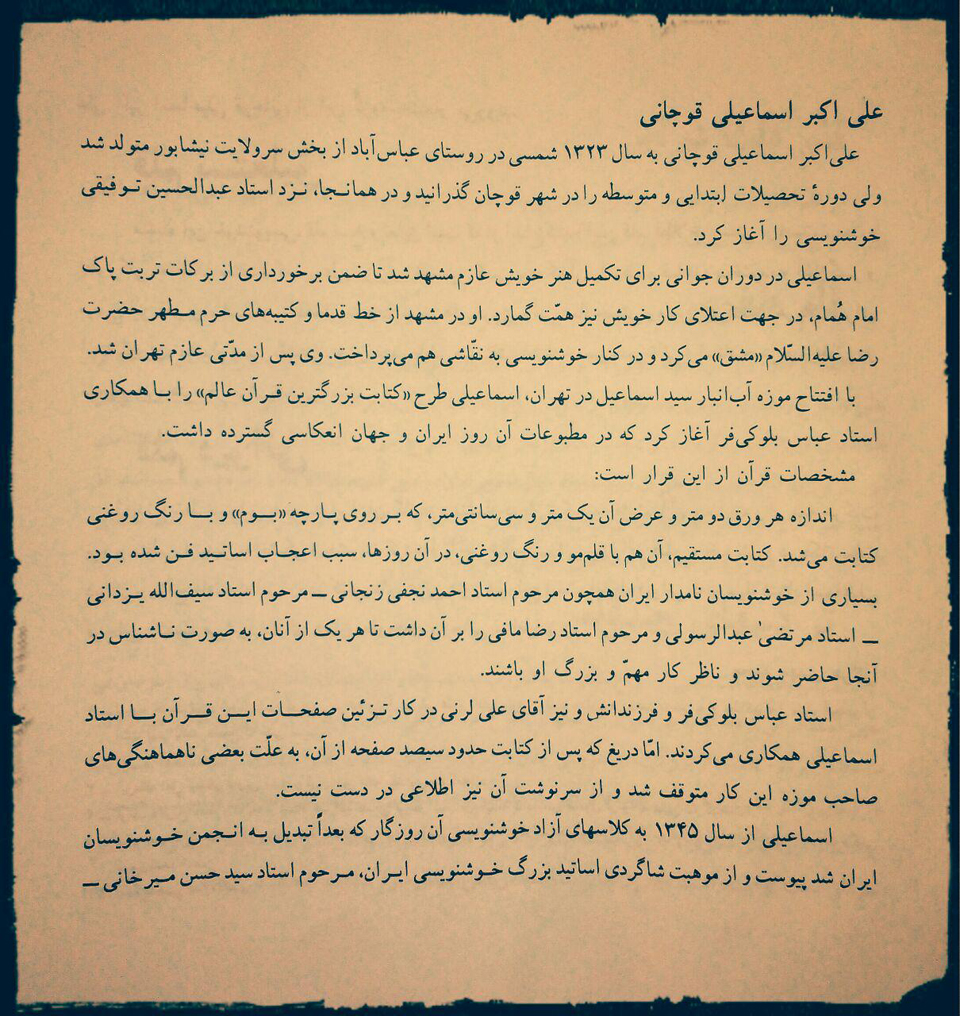 علی اکبر اسماعیلی قوچانی
علی‌اکبر اسماعیلی قوچانی به سال ۱۳۲۳ شمسی در روستای عباس‌آباد از بخش سرولایت نیشابور متولد شد
ولی دورهٔ تحصیلات ابتدایی و متوسطه را در شهر قوچان گذرانید و در همانجا، نزد استاد عبدالحسین توفیقی
خوشنویسی را آغاز کرد.
اسماعیلی در دوران جوانی برای تکمیل هنر خویش عازم مشهد شد تا ضمن برخورداری از برکات تربت پاک
امام هُمام، در جهت اعتلای کار خویش نیز همّت گمارد. او در مشهد از خط قدما و کتیبه‌های حرم مطهر حضرت
رضا علیه‌السّلام «مشق» می‌کرد و در کنار خوشنویسی به نقّاشی هم می‌پرداخت. وی پس از مدّتی عازم تهران شد.
با افتتاح موزه آب‌انبار سید اسماعیل در تهران، اسماعیلی طرح «کتابت بزرگترین قرآن عالم» را با همکاری
استاد عباس بلوکی‌فر آغاز کرد که در مطبوعات آن روز ایران و جهان انعکاسی گسترده داشت.
مشخصات قرآن از این قرار است:
اندازه هر ورق دو متر و عرض آن یک متر و سی‌سانتی‌متر، که بر روی پارچه «بوم» و با رنگ روغنی
کتابت می‌شد. کتابت مستقیم، آن هم با قلم‌مو و رنگ روغنی، در آن روزها، سبب اعجاب اساتید فن شده بود.
بسیاری از خوشنویسان نامدار ایران همچون مرحوم استاد احمد نجفی زنجانی ــ مرحوم استاد سیف‌الله یزدانی
ــ استاد مرتضیٰ عبدالرسولی و مرحوم استاد رضا مافی را بر آن داشت تا هر یک از آنان، به صورت ناشناس در
آنجا حاضر شوند و ناظر کار مهمّ و بزرگ او باشند.
استاد عباس بلوکی‌فر و فرزندانش و نیز آقای علی لرنی در کار تزئین صفحات این قرآن با استاد
اسماعیلی همکاری می‌کردند. امّا دریغ که پس از کتابت حدود سیصد صفحه از آن، به علّت بعضی ناهماهنگی‌های
صاحب موزه این کار متوقف شد و از سرنوشت آن نیز اطلاعی در دست نیست.
اسماعیلی از سال ۱۳۴۵ به کلاسهای آزاد خوشنویسی آن روزگار که بعداً تبدیل به انجمن خوشنویسان
ایران شد پیوست و از موهبت شاگردی اساتید بزرگ خوشنویسی ایران، مرحوم استاد سید حسن میرخانی ــ